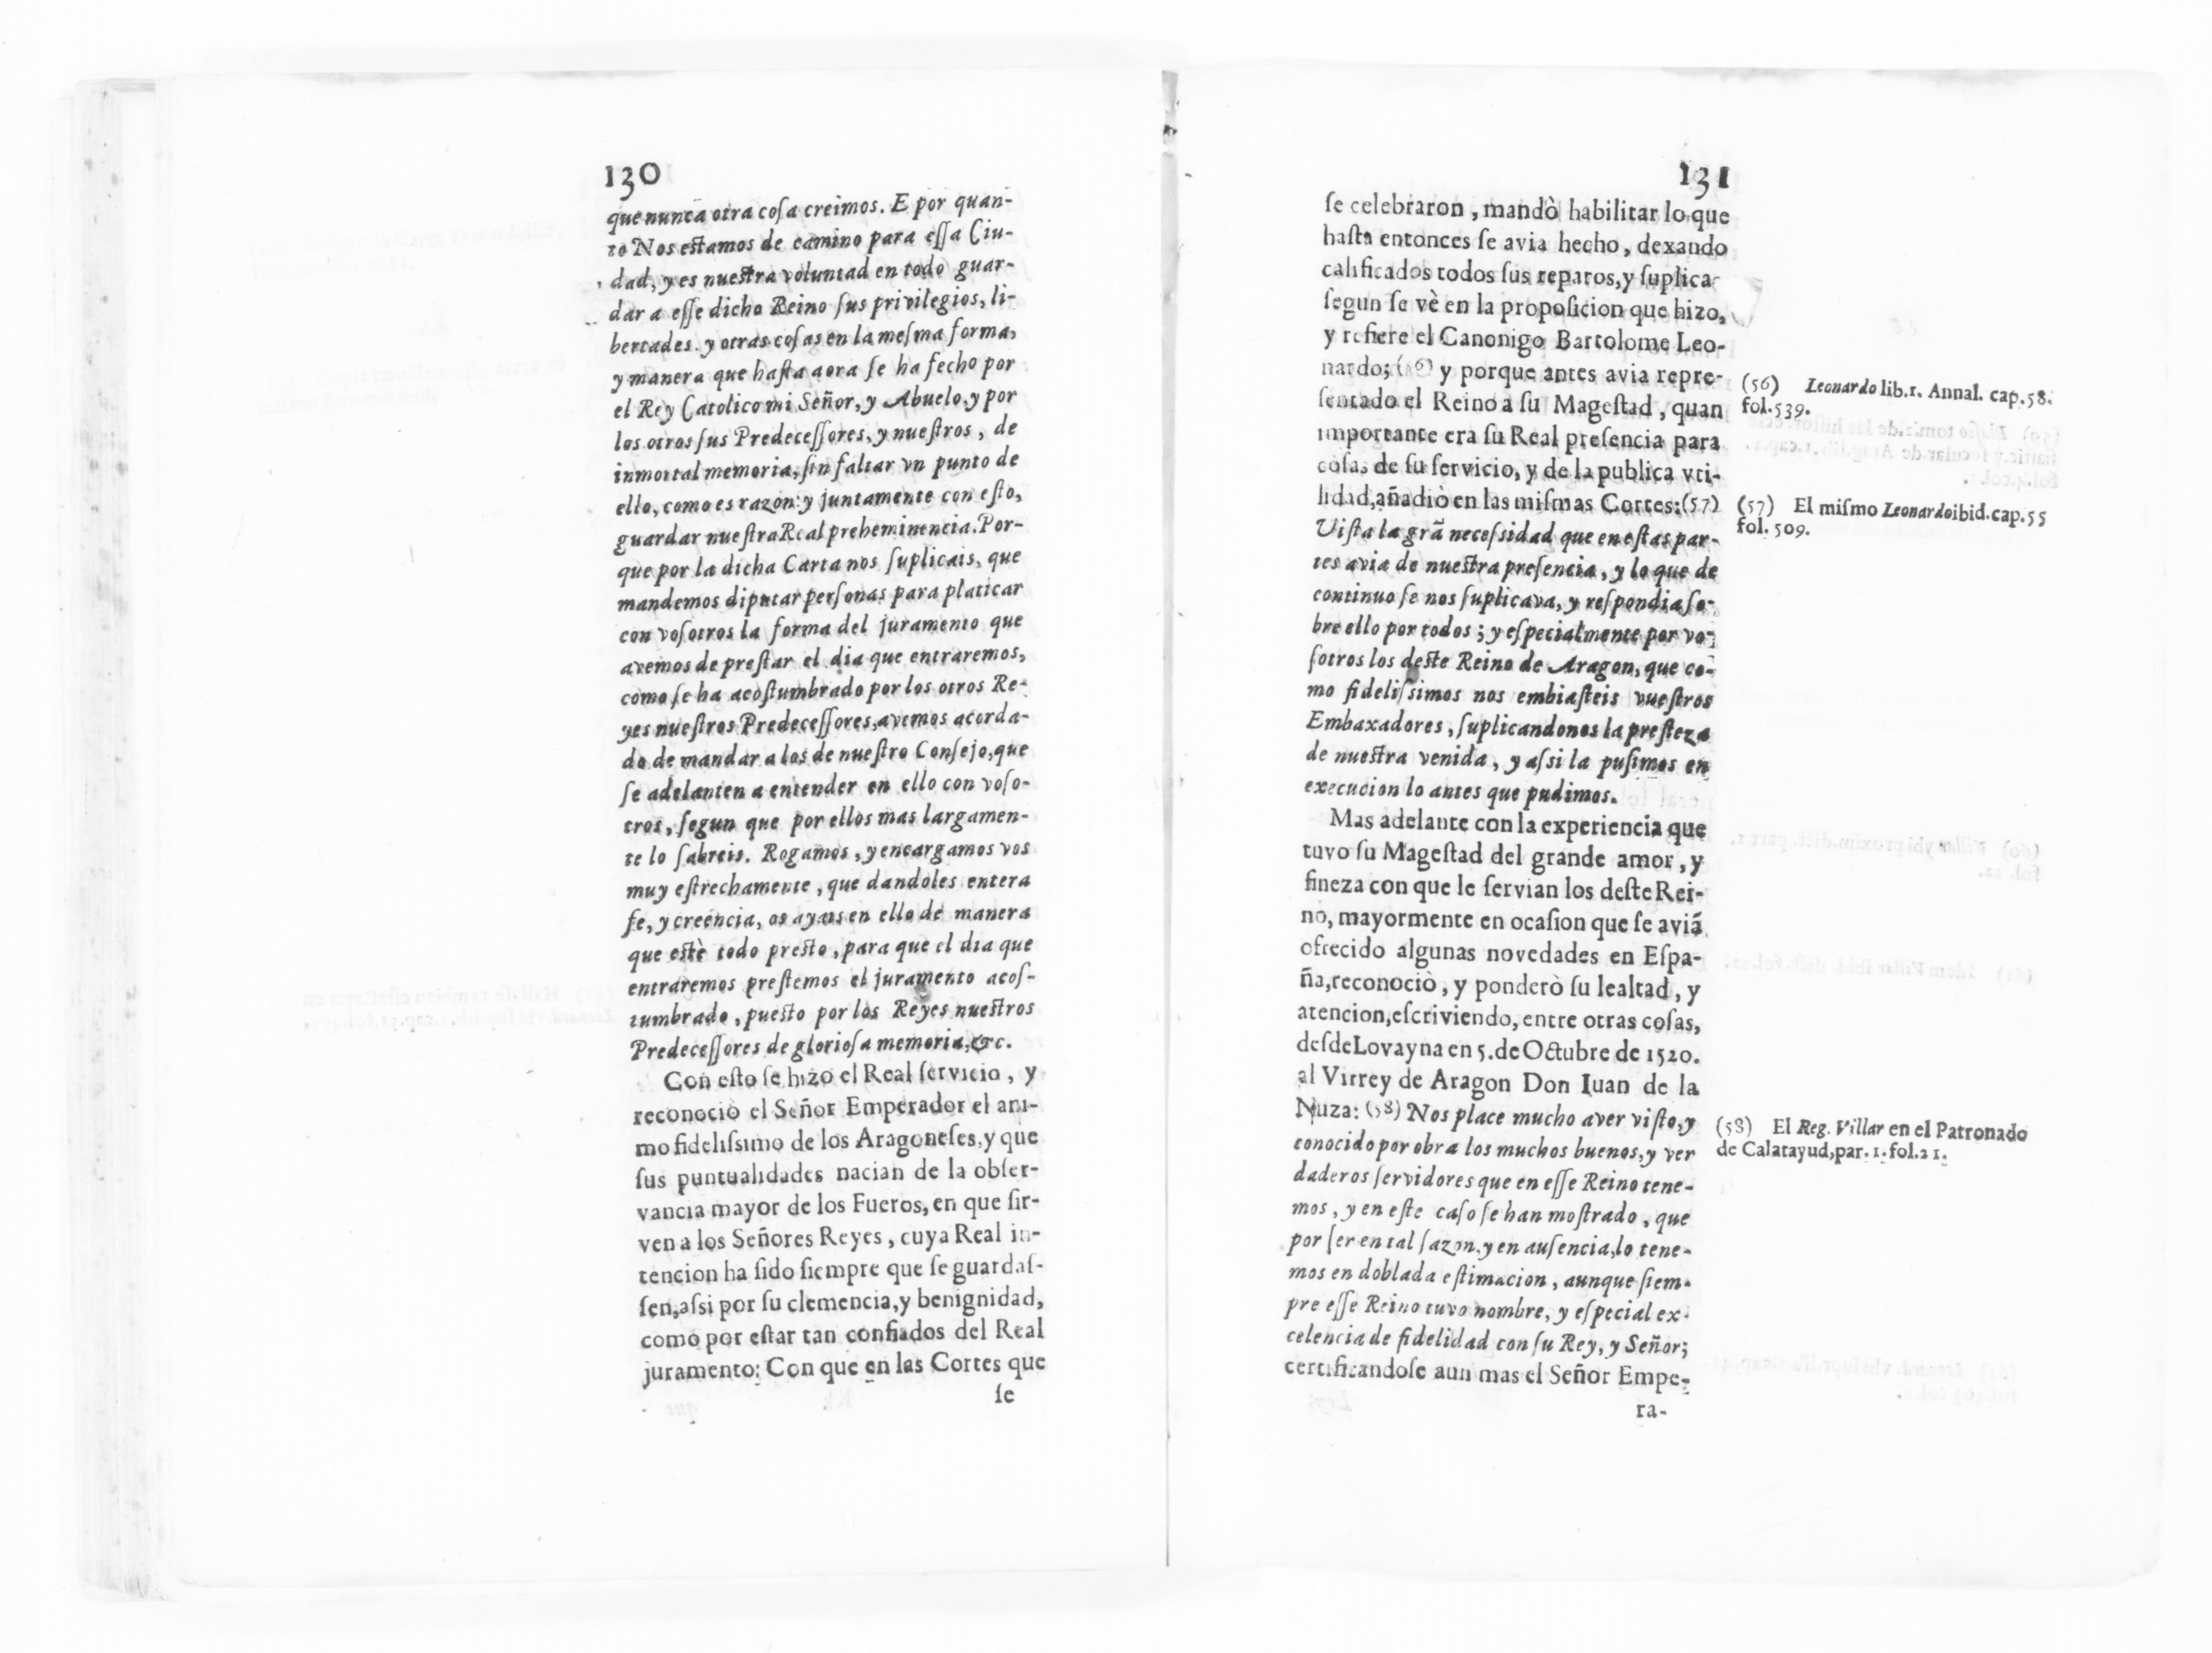 130
que nunca otra coſa creimos. E por quan-
to Nos eſtamos de camino para eſſa Ciu-
dad, y es nueſtra voluntad en todo guar-
dar a eſſe dicho Reino ſus privilegios, li-
bertades. y otras coſas en la meſma forma,
y manera que haſta aora ſe ha fecho por
el Rey Catolico mi Señor, y Abuelo, y por
los otros ſus Predeceſſores, y nueſtros, de
inmortal memoria, ſin faltar vn punto de
ello, como es razon: y juntamente con eſto,
guardar nueſtra Real preheminencia. Por-
que por la dicha Carta nos ſuplicais, que
mandemos diputar perſonas para platicar
con voſotros la forma del juramento que
avemos de preſtar el dia que entraremos,
como ſe ha acoſtumbrado por los otros Re-
yes nueſtros Predeceſſores, avemos acorda-
do de mandar a los de nueſtro Conſejo, que
ſe adelanten a entender en ello con voſo-
tros, ſegun que por ellos mas largamen-
te lo ſabreis. Rogamos, y encargamos vos
muy eſtrechamente, que dandoles entera
fe, y creencia, os ayais en ello de manera
que eſtè todo preſto, para que el dia que
entraremos preſtemos el juramento acoſ-
tumbrado, pueſto por los Reyes nueſtros
Predeceſſores de glorioſa memoria, &c.
Con eſto ſe hizo el Real ſervicio, y
reconociò el Señor Emperador el ani-
mo fideliſsimo de los Aragoneſes, y que
ſus puntualidades nacian de la obſer-
vancia mayor de los Fueros, en que ſir-
ven a los Señores Reyes, cuya Real in-
tencion ha ſido ſiempre que ſe guardaſ-
ſen, aſsi por ſu clemencia, y benignidad,
como por eſtar tan confiados del Real
juramento: Con que en las Cortes que
ſe
131
ſe celebraron, mandò habilitar lo que
haſta entonces ſe avia hecho, dexando
calificados todos ſus reparos, y ſuplica
ſegun ſe vè en la propoſicion que hizo,
y refiere el Canonigo Bartolome Leo-
nardo; (56) y porque antes avia repre-
ſentado el Reino a ſu Mageſtad, quan
importante era ſu Real preſencia para
coſas de ſu ſervicio, y de la publica vti-
lidad, añadiò en las miſmas Cortes: (57)
Viſta la grã neceſsidad que en eſtas par-
tes avia de nueſtra preſencia, y lo que de
continuo ſe nos ſuplicava, y reſpondia ſo-
bre ello por todos; y eſpecialmente por vo-
ſotros los deſte Reino de Aragon, que co-
mo fideliſsimos nos embiaſteis vueſtros
Embaxadores, ſuplicandonos la preſteza
de nueſtra venida, y aſsi la puſimos en
execucion lo antes que pudimos.
Mas adelante con la experiencia que
tuvo ſu Mageſtad del grande amor, y
fineza con que le ſervian los deſte Rei-
no, mayormente en ocaſion que ſe aviã
ofrecido algunas novedades en Eſpa-
ña, reconociò, y ponderò ſu lealtad, y
atencion, eſcriviendo, entre otras coſas,
deſde Lovayna en 5. de Octubre de 1520.
al Virrey de Aragon Don Iuan de la
Nuza: (58) Nos place mucho aver viſto, y
conocido por obra los muchos buenos, y ver
daderos ſervidores que en eſſe Reino tene-
mos, y en eſte caſo ſe han moſtrado, que
por ſer en tal ſazon, y en auſencia, lo tene-
mos en doblada eſtimacion, aunque ſiem-
pre eſſe Reino tuvo nombre, y eſpecial ex-
celencia de fidelidad con ſu Rey, y Señor;
certificandoſe aun mas el Señor Empe-
ra-
(56) Leonardo lib.1. Annal. cap.58.
fol.539.
(57) El miſmo Leonardo ibid. cap.55
fol. 509.
(58) El Reg. Villar en el Patronado
de Calatayud, par. 1. fol.21.